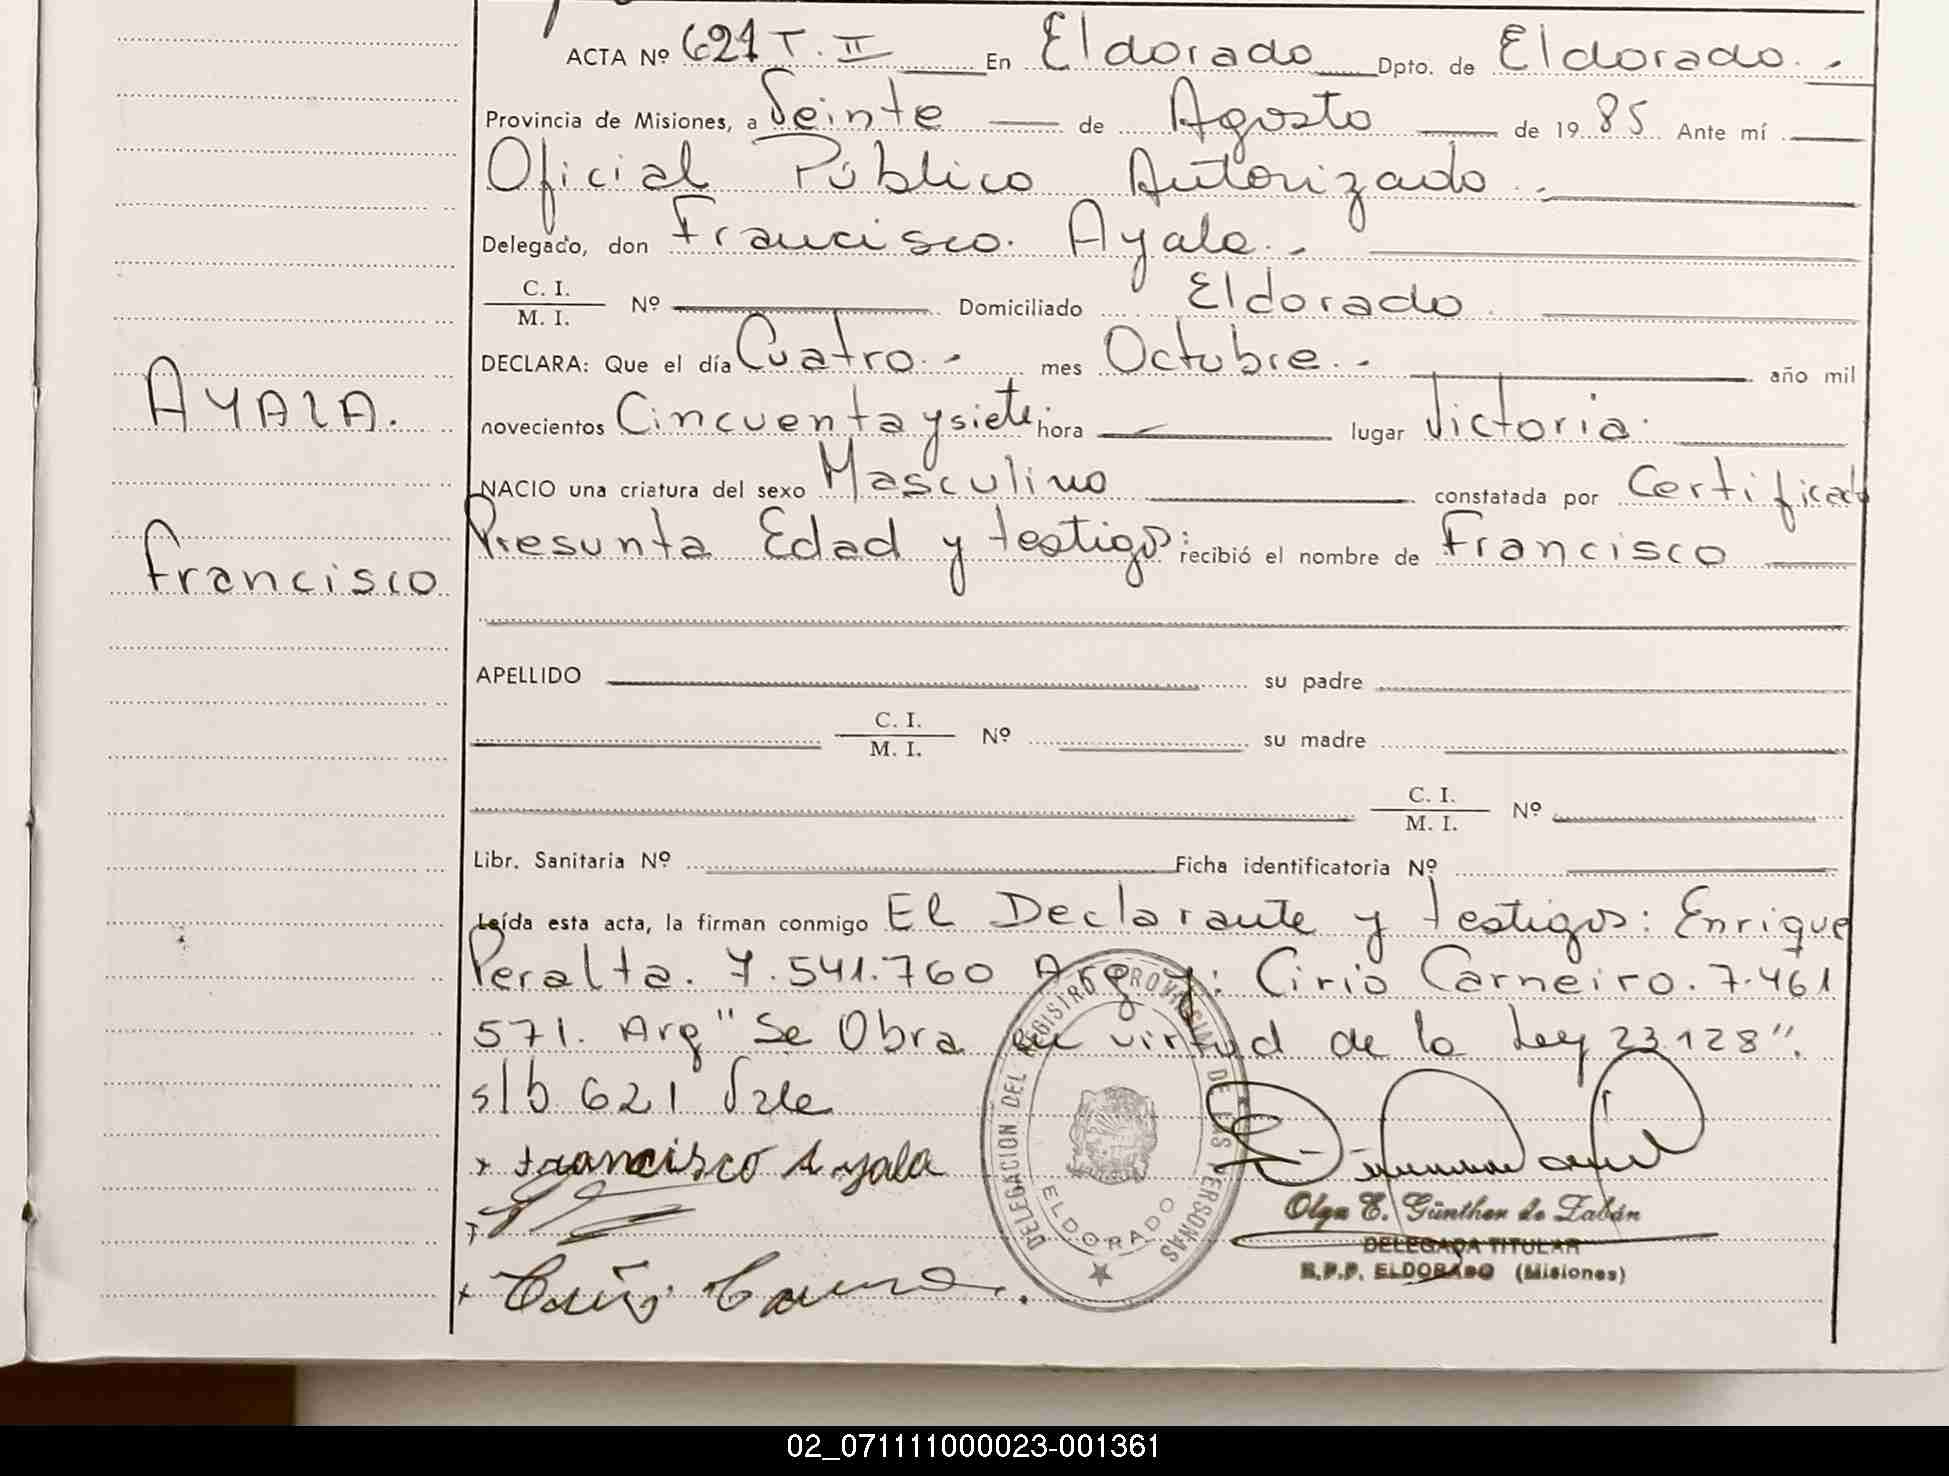 ACTA Nº 621 T. II En Eldorado Dpto. de Eldorado. -
Provincia de Misiones, a Veinte de Agosto de 19 85 Ante mí
Oficial Público Autorizado. -
Delegado, don Francisco. Ayala. -
C. I.
M. I. Nº Domiciliado Eldorado.
DECLARA: Que el día Cuatro. - mes Octubre. - año mil
novecientos Cincuenta y siete. hora lugar Victoria.
NACIO una criatura del sexo Masculino constatada por Certificado
Presunta Edad y testigos: recibió el nombre de Francisco
AYALA.
Francisco
APELLIDO su padre
C. I.
M. I. Nº su madre
C. I.
M. I. Nº
Libr. Sanitaria Nº Ficha identificatoria Nº
Leída esta acta, la firman conmigo El Declarante y testigos: Enrique
Peralta. 7.541.760 Arg y: Cirio Carneiro. 7.461
571. Arg "Se Obra en virtud de la Ley 23.128".
s/b 621 Vale
x Francisco Ayala
DELEGACION DEL REGISTRO PROVINCIAL DE LAS PERSONAS
ELDORADO
Olga E. Günther de Zabán
DELEGADA TITULAR
R.P.P. ELDORADO (Misiones)
02_071111000023-001361